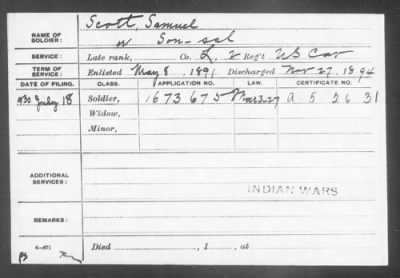 NAME OF SOLDIER: Scott, Samuel
SERVICE: Late rank, Co. L, 2 Reg't US Cav
TERM OF SERVICE: Enlisted May 8, 1891 Discharged Nov 27, 1894
DATE OF FILING. CLASS. APPLICATION NO. LAW. CERTIFICATE NO.
1930 July 18 Soldier, 1673675 A-5 26 31
Widow,
Minor,
ADDITIONAL SERVICES:
INDIAN WARS
REMARKS:
Died , 1 , at